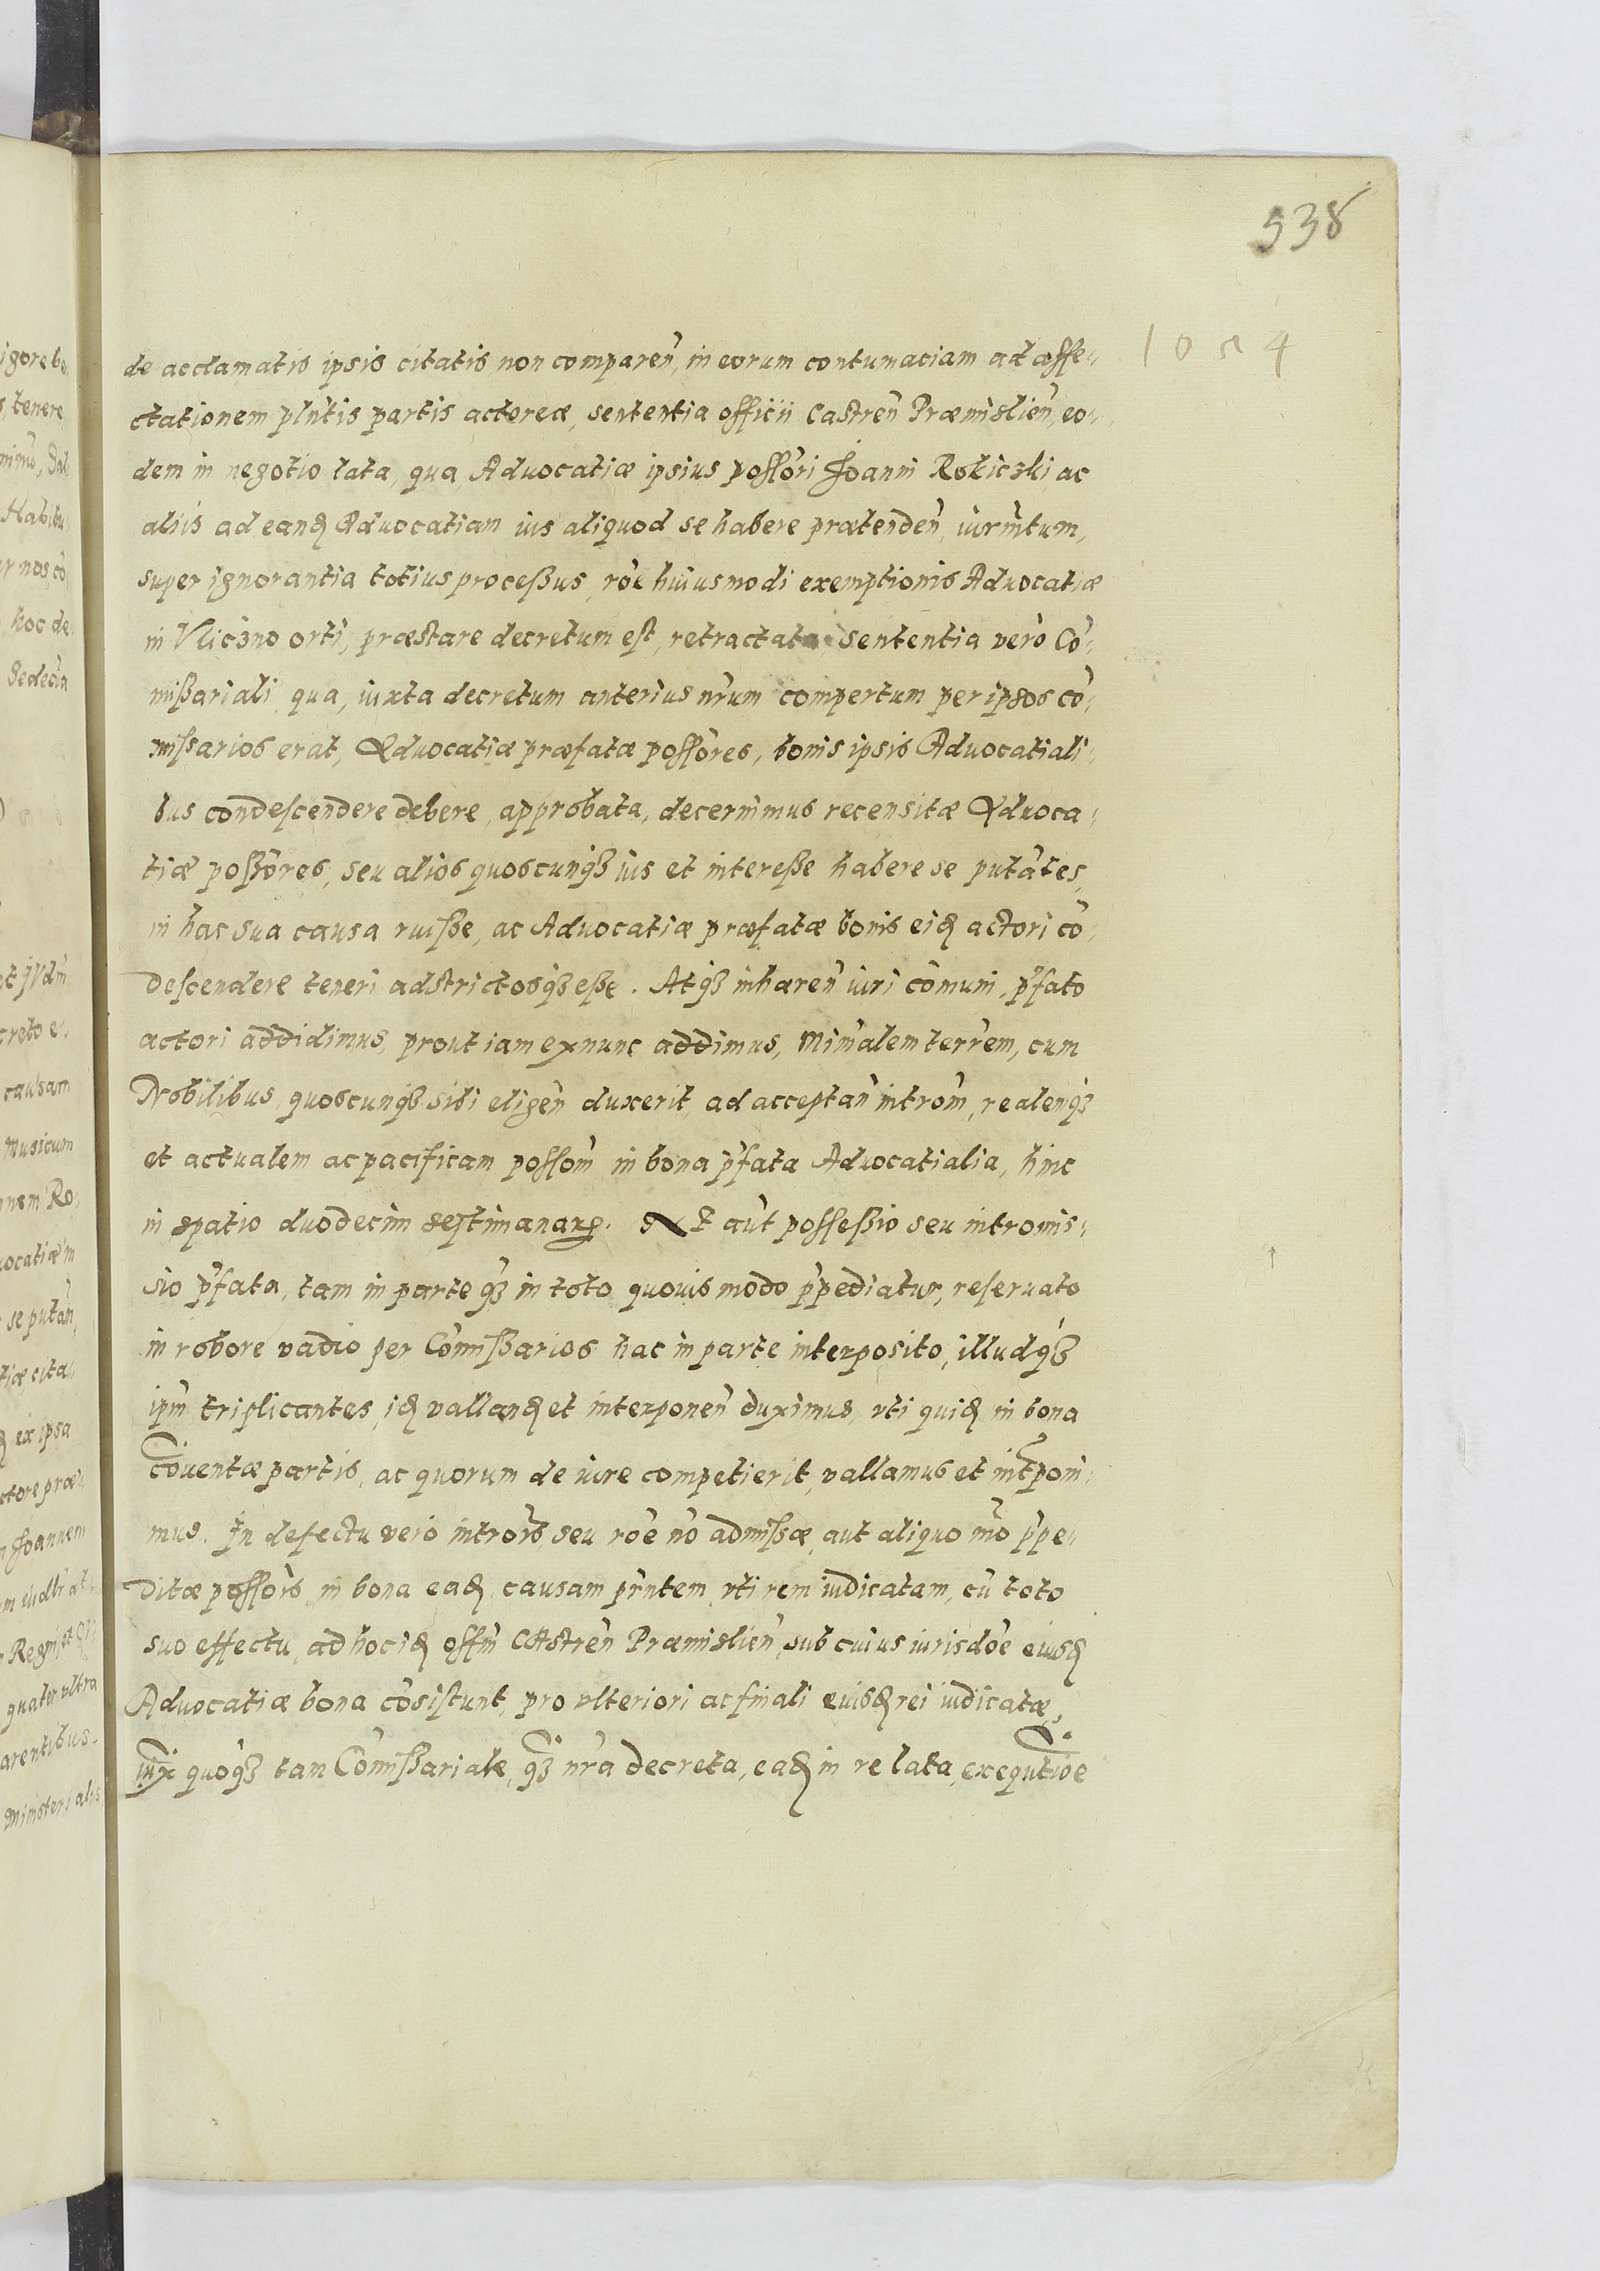 538
1054
de acclamatis ipsis citatis non comparen̄, in eorum contumaciam ad affe-
ctationem pln̄tis partis actoreæ, sententia officii Castren̄ Præmislien̄, eo-
dem in negotio lata, qua Aduocatiæ ipsius possōri Joanni Rokiczki, ac
aliis ad eand Aduocatiam ius aliquod se habere prætenden̄, iurm̄tum,
super ignorantia totius processus, rōe huiusmodi exemptionis Aduocatiæ
in Vliczno orti, præstare decretum est, retractata, sententia vero Cō-
missariali, qua, iuxta decretum anterius nr̄um compertum per ipsos cō-
missarios erat, Aduocatiæ præfatæ possōres, bonis ipsis Aduocatiali-
bus condescendere debere, approbata, decernimus recensitæ Aduoca-
tiæ possōres, seu alios quoscunqȝ ius et interesse habere se putātes,
in hac sua causa ruisse, ac Aduocatiæ præfatæ bonis eid actori cō-
descendere teneri adstrictosqȝ esse. Atqȝ inhæren̄ iuri cōmuni, p̄fato
actori addidimus, prout iam ex nunc addimus, Minālem terr̄em, cum
Nobilibus, quoscunqȝ sibi eligen̄ duxerit, ad acceptan̄ intrōm, realemqȝ
et actualem ac pacificam possōm in bona p̄fata Aduocatialia, hinc
in spatio duodecim septimanarꝝ. Et aūt possessio seu intromis-
sio p̄fata, tam in parte qȝ in toto quouis modo p̄pediatur, reseruato
in robore vadio per Cōmissarios hac in parte interposito, illudqȝ
ipm̄ triplicantes, id valland et interponen̄ duximus, vti quid in bona
cōuentæ partis, ac quorum de iure competierit, vallamus et int̄poni-
mus. In defectu vero intrōis, seu rōe nō admissæ, aut aliquo mō p̄pe-
ditæ possōis, in bona ead, causam pr̄ntem, vti rem iudicatam, cū toto
suo effectu, ad hoc id offm̄ Castren̄ Præmislien̄, sub cuius iurisdōe eiusd
Aduocatiæ bona cōsistunt, pro vlteriori ac finali euisd rei iudicatæ,
iux̄ quoqȝ tam Cōmissariale, qȝ nr̄a decreta, ead in re lata, exequtiōe